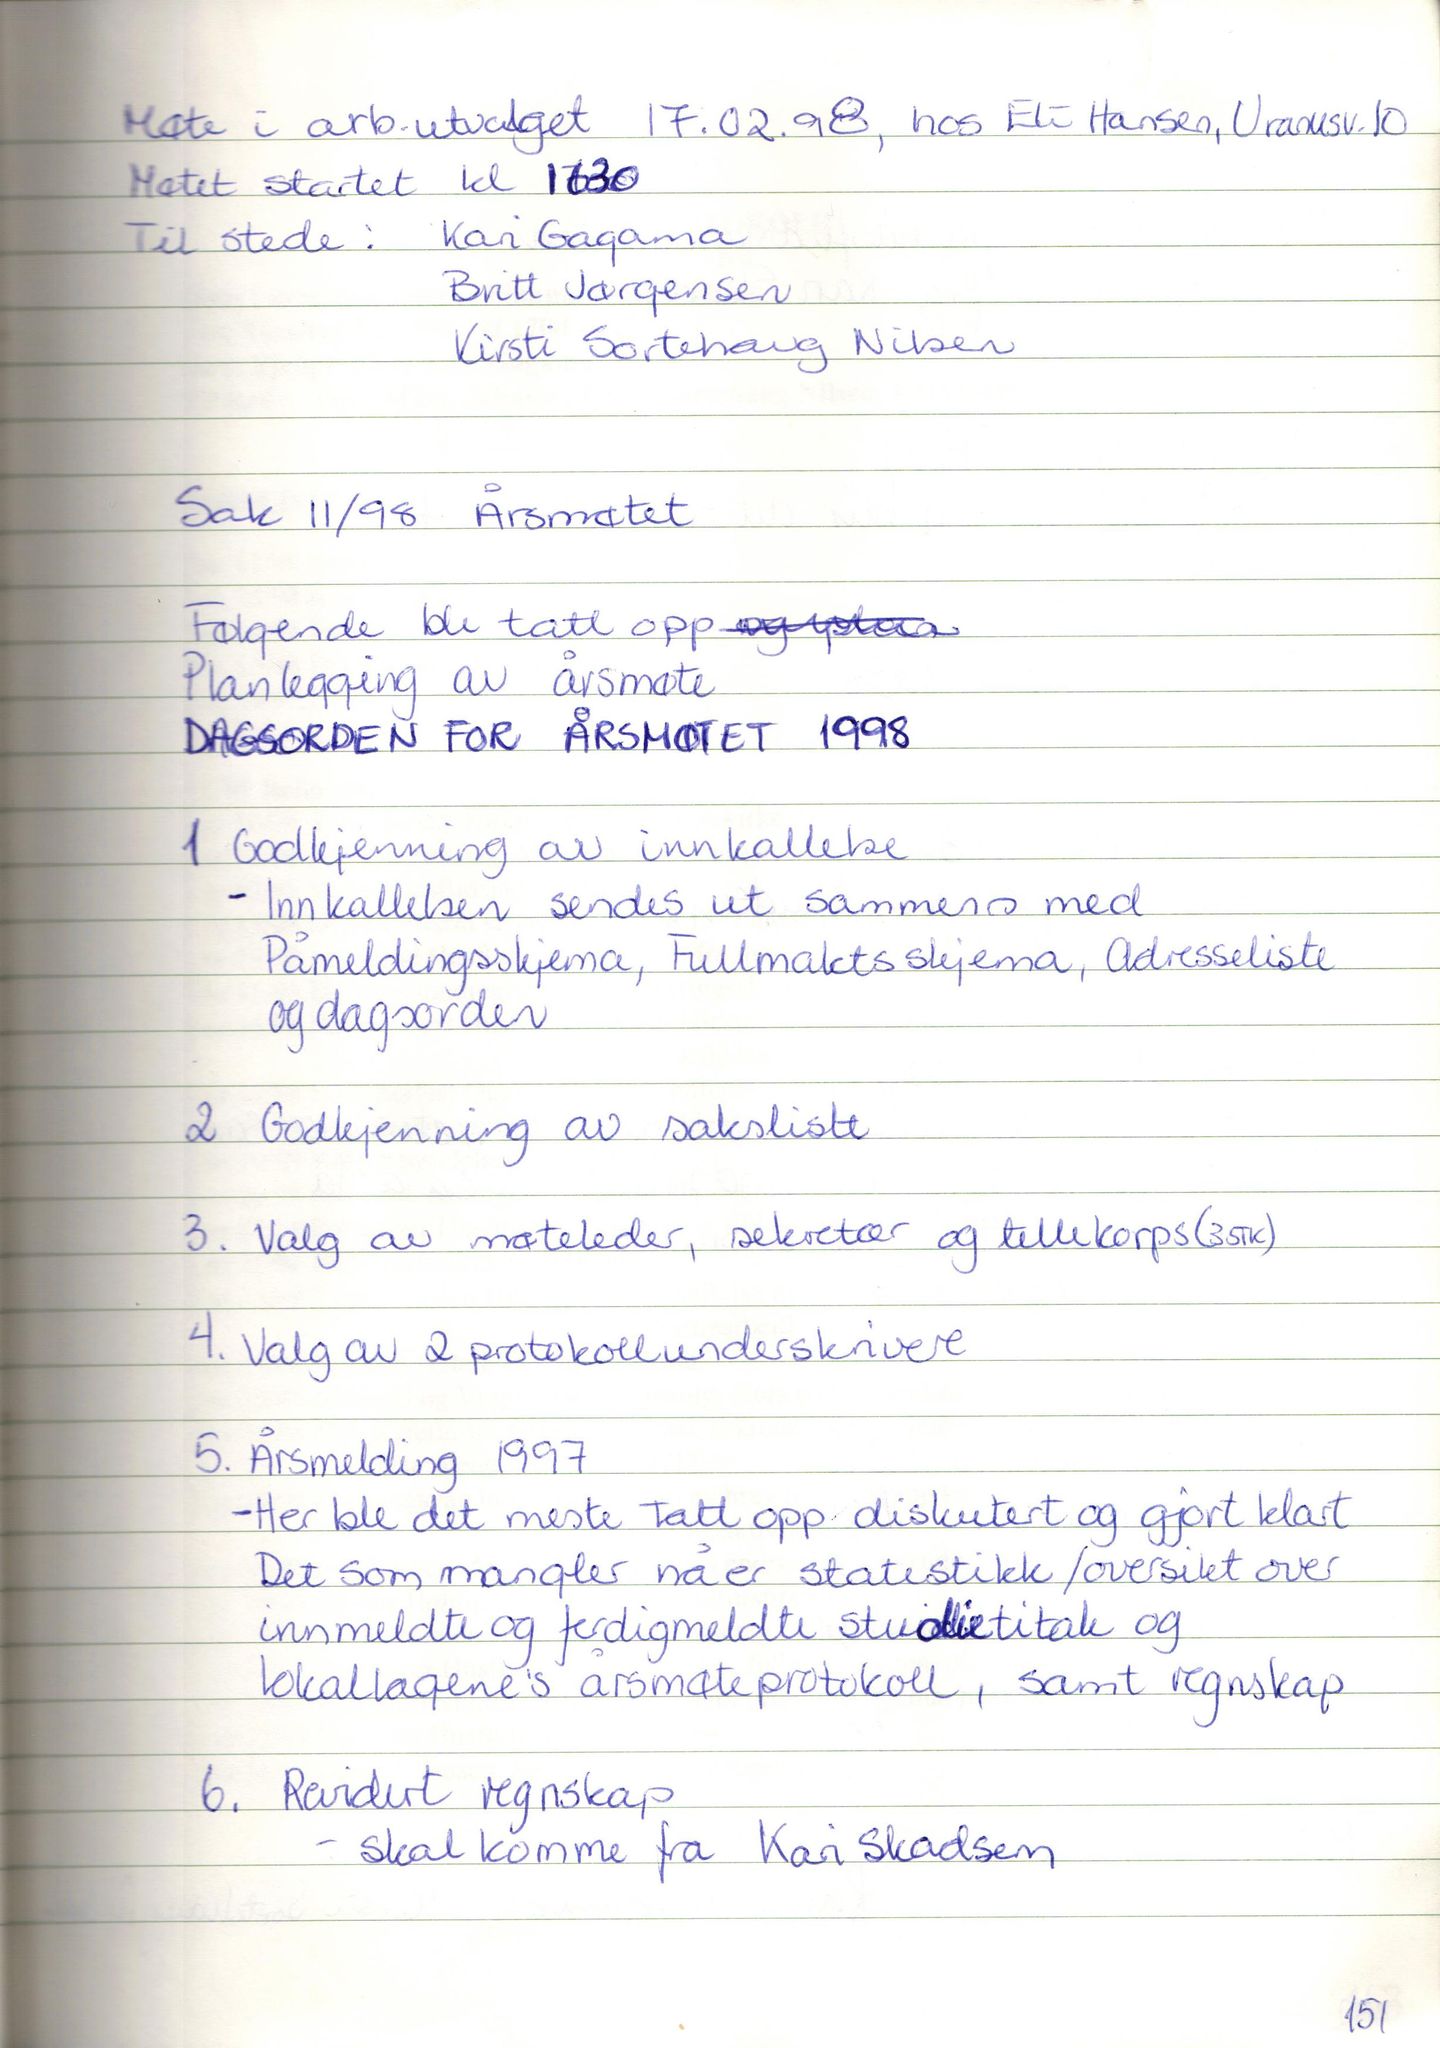 Møte i arb.utvalget 17.02.98, hos Eli Hansen, Uranusv. 10
Møtet startet kl 1630
Til stede: Kari Gagama
Britt Jørgensen
Kirsti Sortehaug Nilsen
Sak 11/98 Årsmøtet
Følgende ble tatt opp
Planlegging av årsmøte
DAGSORDEN FOR ÅRSMØTET 1998
1 Godkjenning av innkallelse
- Innkallelsen sendes ut sammen med
Påmeldingsskjema, Fullmaktsskjema, Adresseliste
og dagsorden
2 Godkjenning av saksliste
3. Valg av møteleder, sekretær og tellekorps (3 STK)
4. Valg av 2 protokollunderskrivere
5. Årsmelding 1997
- Her ble det meste tatt opp diskutert og gjort klart
Det som mangler nå er statistikk/oversikt over
innmeldte og ferdigmeldte studietitak og
lokallagene's årsmøteprotokoll, samt regnskap
6. Revidert regnskap
- skal komme fra Kari Skadsem
151